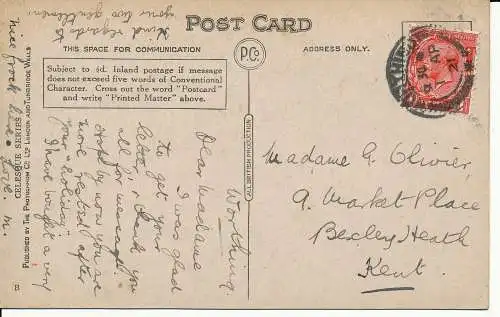 POST CARD
THIS SPACE FOR COMMUNICATION
P.Co.
ADDRESS ONLY.
Subject to ½d. Inland postage if message
does not exceed five words of Conventional
Character. Cross out the word "Postcard"
and write "Printed Matter" above.
CELESQUE SERIES
PUBLISHED BY THE PHOTOCHROM CO. LTD. LONDON AND TUNBRIDGE WELLS
ALL BRITISH PRODUCTION
B
Worthing.
Dear Madame
I was glad
to get your
letter & thank you
all for message
now you are
more rested after
your "Holiday"
I have bought a very
nice frock blue Love. M.
Kind regards to
your two gentlemen
Madame G. Olivier
9. Market Place
Bexley Heath
Kent.